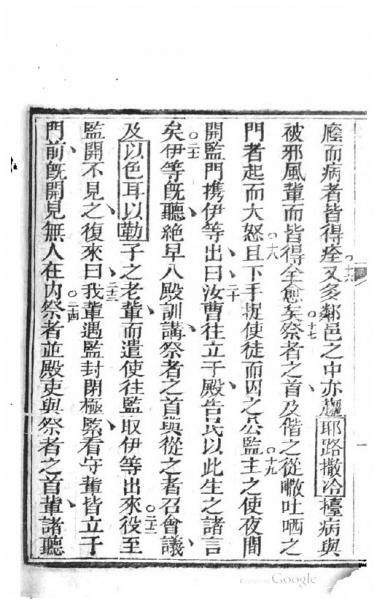 廕而病者皆得痊又多鄰邑之中亦趲耶路撒冷擡病與
○十六
被邪風輩而皆得全愈矣祭者之首及偕之從嗽吐哂之
○十七
門者起而大怒且下手捉使徒而囚之公監主之使夜間
○十八
○十九
開監門攜伊等出曰汝曹往立于殿告民以此生之諸言
二十
矣伊等既聽絕早入殿訓講祭者之首與從之者召會議
○二十一
及以色耳以勒子之老輩而遣使往監取伊等出來役至
○二十二
監開不見之復來曰我輩遇監封閉極緊看守輩皆立于
二十三
門前既開見無人在内祭者並殿吏與祭者之首輩諸聽
○二十四
Google